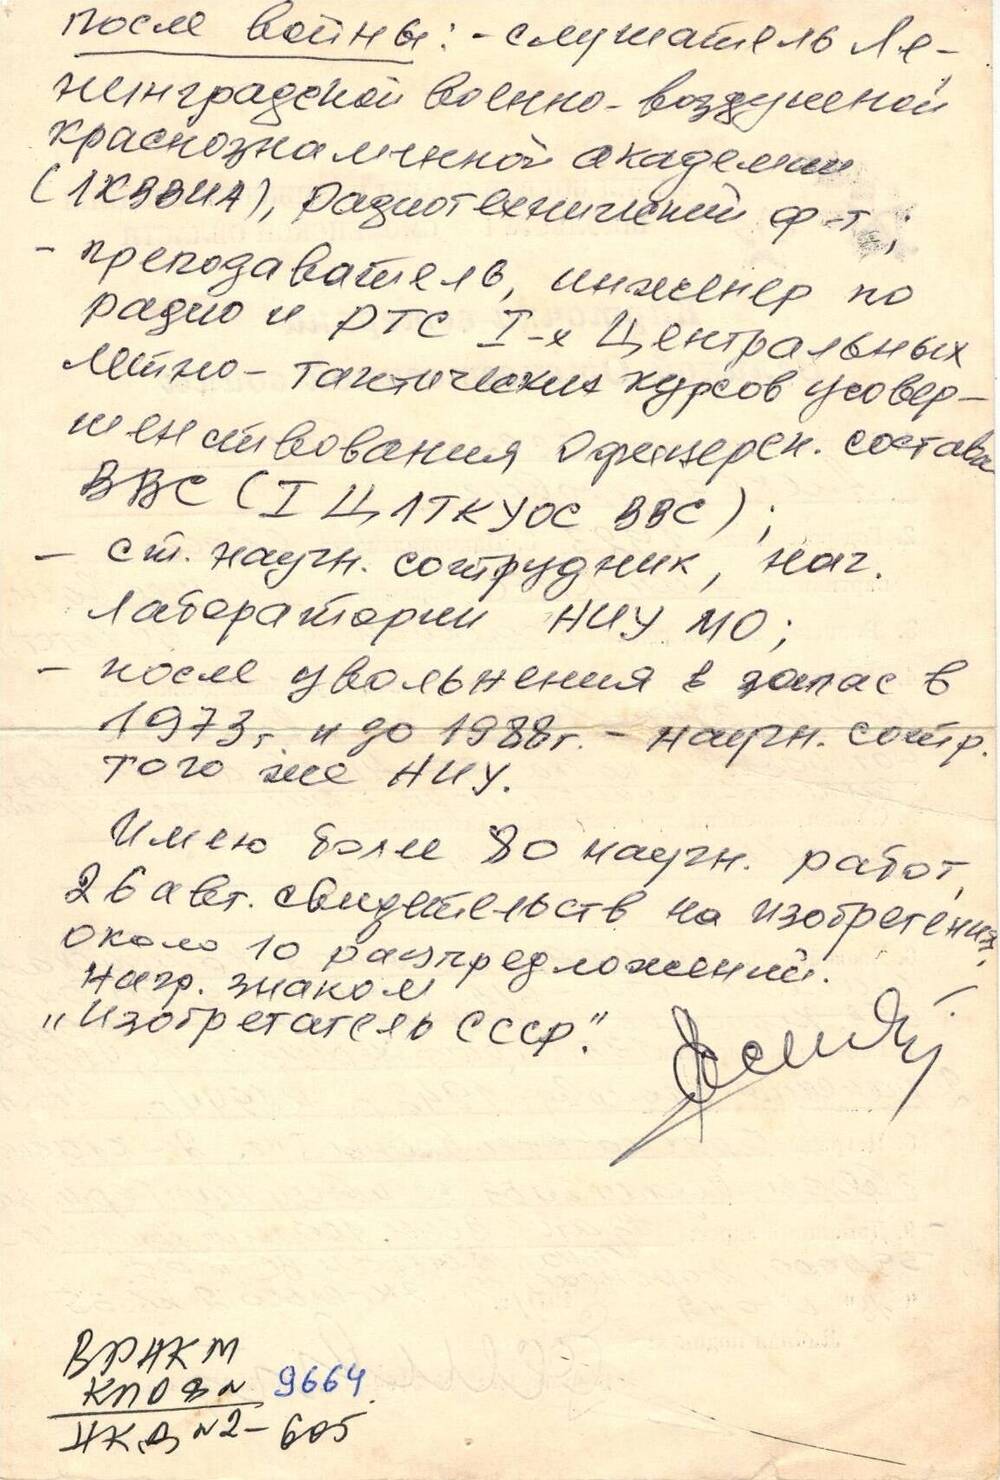 После войны: - слушатель Ле-
нинградской военно-воздушной
краснознаменной академии
(ЛКВВИА), радиотехнический ф-т;
- преподаватель, инженер по
радио и РТС I-х Центральных
летно-тактических курсов усовер-
шенствования офицерск. состава
ВВС (I ЦЛТКУОС ВВС);
- ст. научн. сотрудник, нач.
лаборатории НИУ МО;
- после увольнения в запас в
1973г. и до 1988г. - научн. сотр.
того же НИУ.
Имею более 80 научн. работ,
26 авт. свидетельств на изобретения,
около 10 рацпредложений.
Нагр. знаком
„Изобретатель СССР".
ВРНКМ
КПОФ№ 9664
НКД №2-605